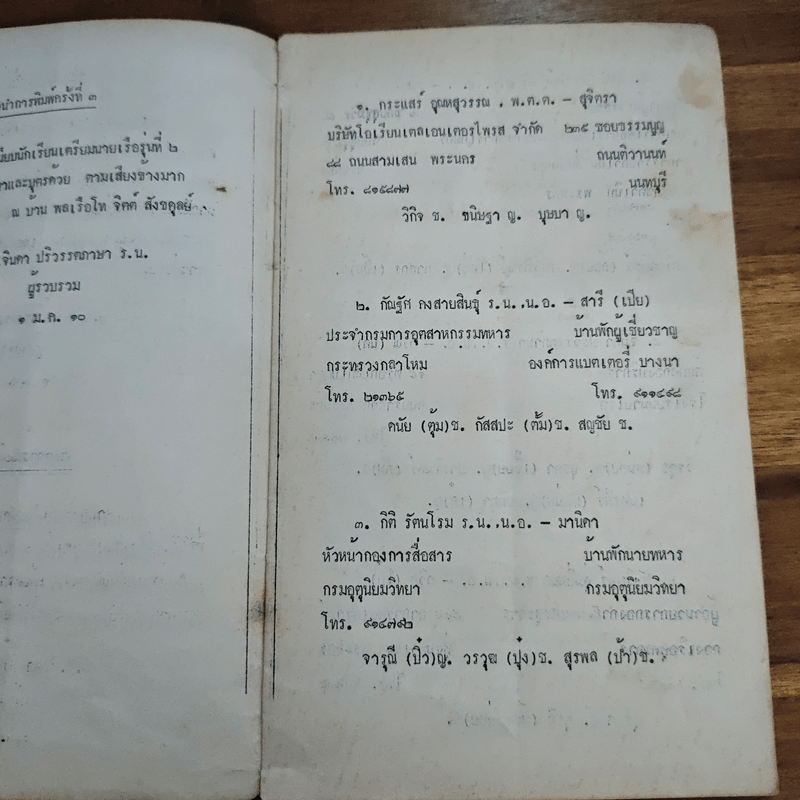 นำการพิมพ์ครั้งที่ ๓
นักเรียนเตรียมนายเรือรุ่นที่ ๒
และบุตรด้วย ตามเสียงข้างมาก
ณ บ้าน พลเรือโท จิตต์ สังขดุลย์
จินดา ปริวรรตภาษา ร.น.
ผู้รวบรวม
๑ ม.ค. ๑๐
๑. กระแสร์ อุณหสุวรรณ, พ.ต.ต. – สุจิตรา
บริษัทโถ่เรียนเตลเอนเตอรไพรส จำกัด ๒๓๕ ซอยธรรมนูญ
๔๔ ถนนสามเสน พระนคร ถนนติวานนท์
โทร. ๘๑๕๘๗๗ นนทบุรี
วิกิจ ช. ขนิษฐา ญ. บุษบา ญ.
๒. กัณฐัศ คงสายสินธุ์ ร.น.,น.อ. – สารี (เปีย)
ประจำกรมการอุตสาหกรรมทหาร บ้านพักผู้เชี่ยวชาญ
กระทรวงกลาโหม องค์การแบตเตอรี่ บางนา
โทร. ๒๑๓๖๕ โทร. ๙๑๑๔๙๘
คนัย (ตุ้ม)ช. กัสสปะ (ต้ั้ม)ช. สญชัย ช.
๓. กิติ รัตนโรม ร.น.,น.อ. – มานิดา
หัวหน้ากองการสื่อสาร บ้านพักนายทหาร
กรมอุตุนิยมวิทยา กรมอุตุนิยมวิทยา
โทร. ๙๑๔๗๙๒
จารุณี (ปิ๋ว)ญ. วรวุฒ (ปุ๋ง)ช. สุรพล (ป้ำ)ช.